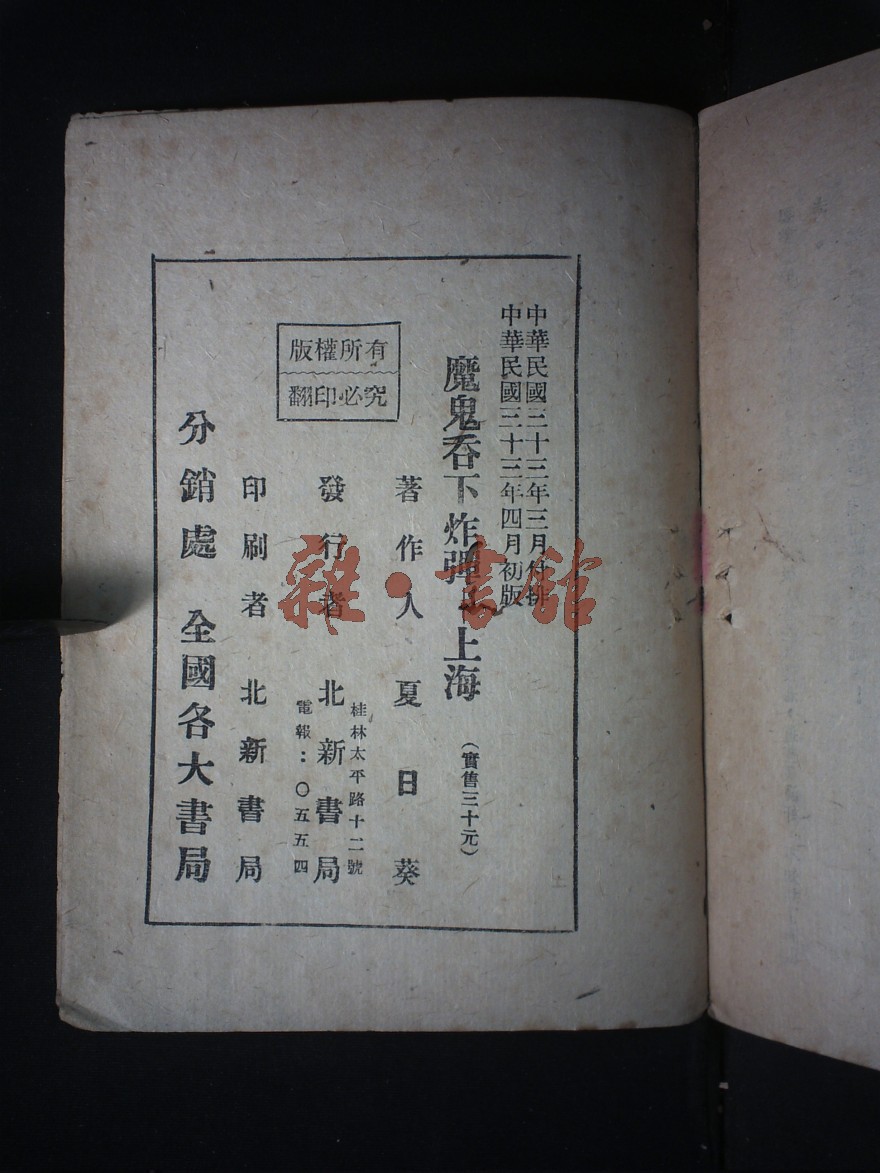 中華民國三十三年三月付排
中華民國三十三年四月初版
魔鬼吞下炸彈 上海
(實售三十元)
著作人 夏日葵
發行者 北新書局
桂林太平路十二號
電報：〇五五四
印刷者 北新書局
分銷處 全國各大書局
版權所有
翻印必究
雜·書館